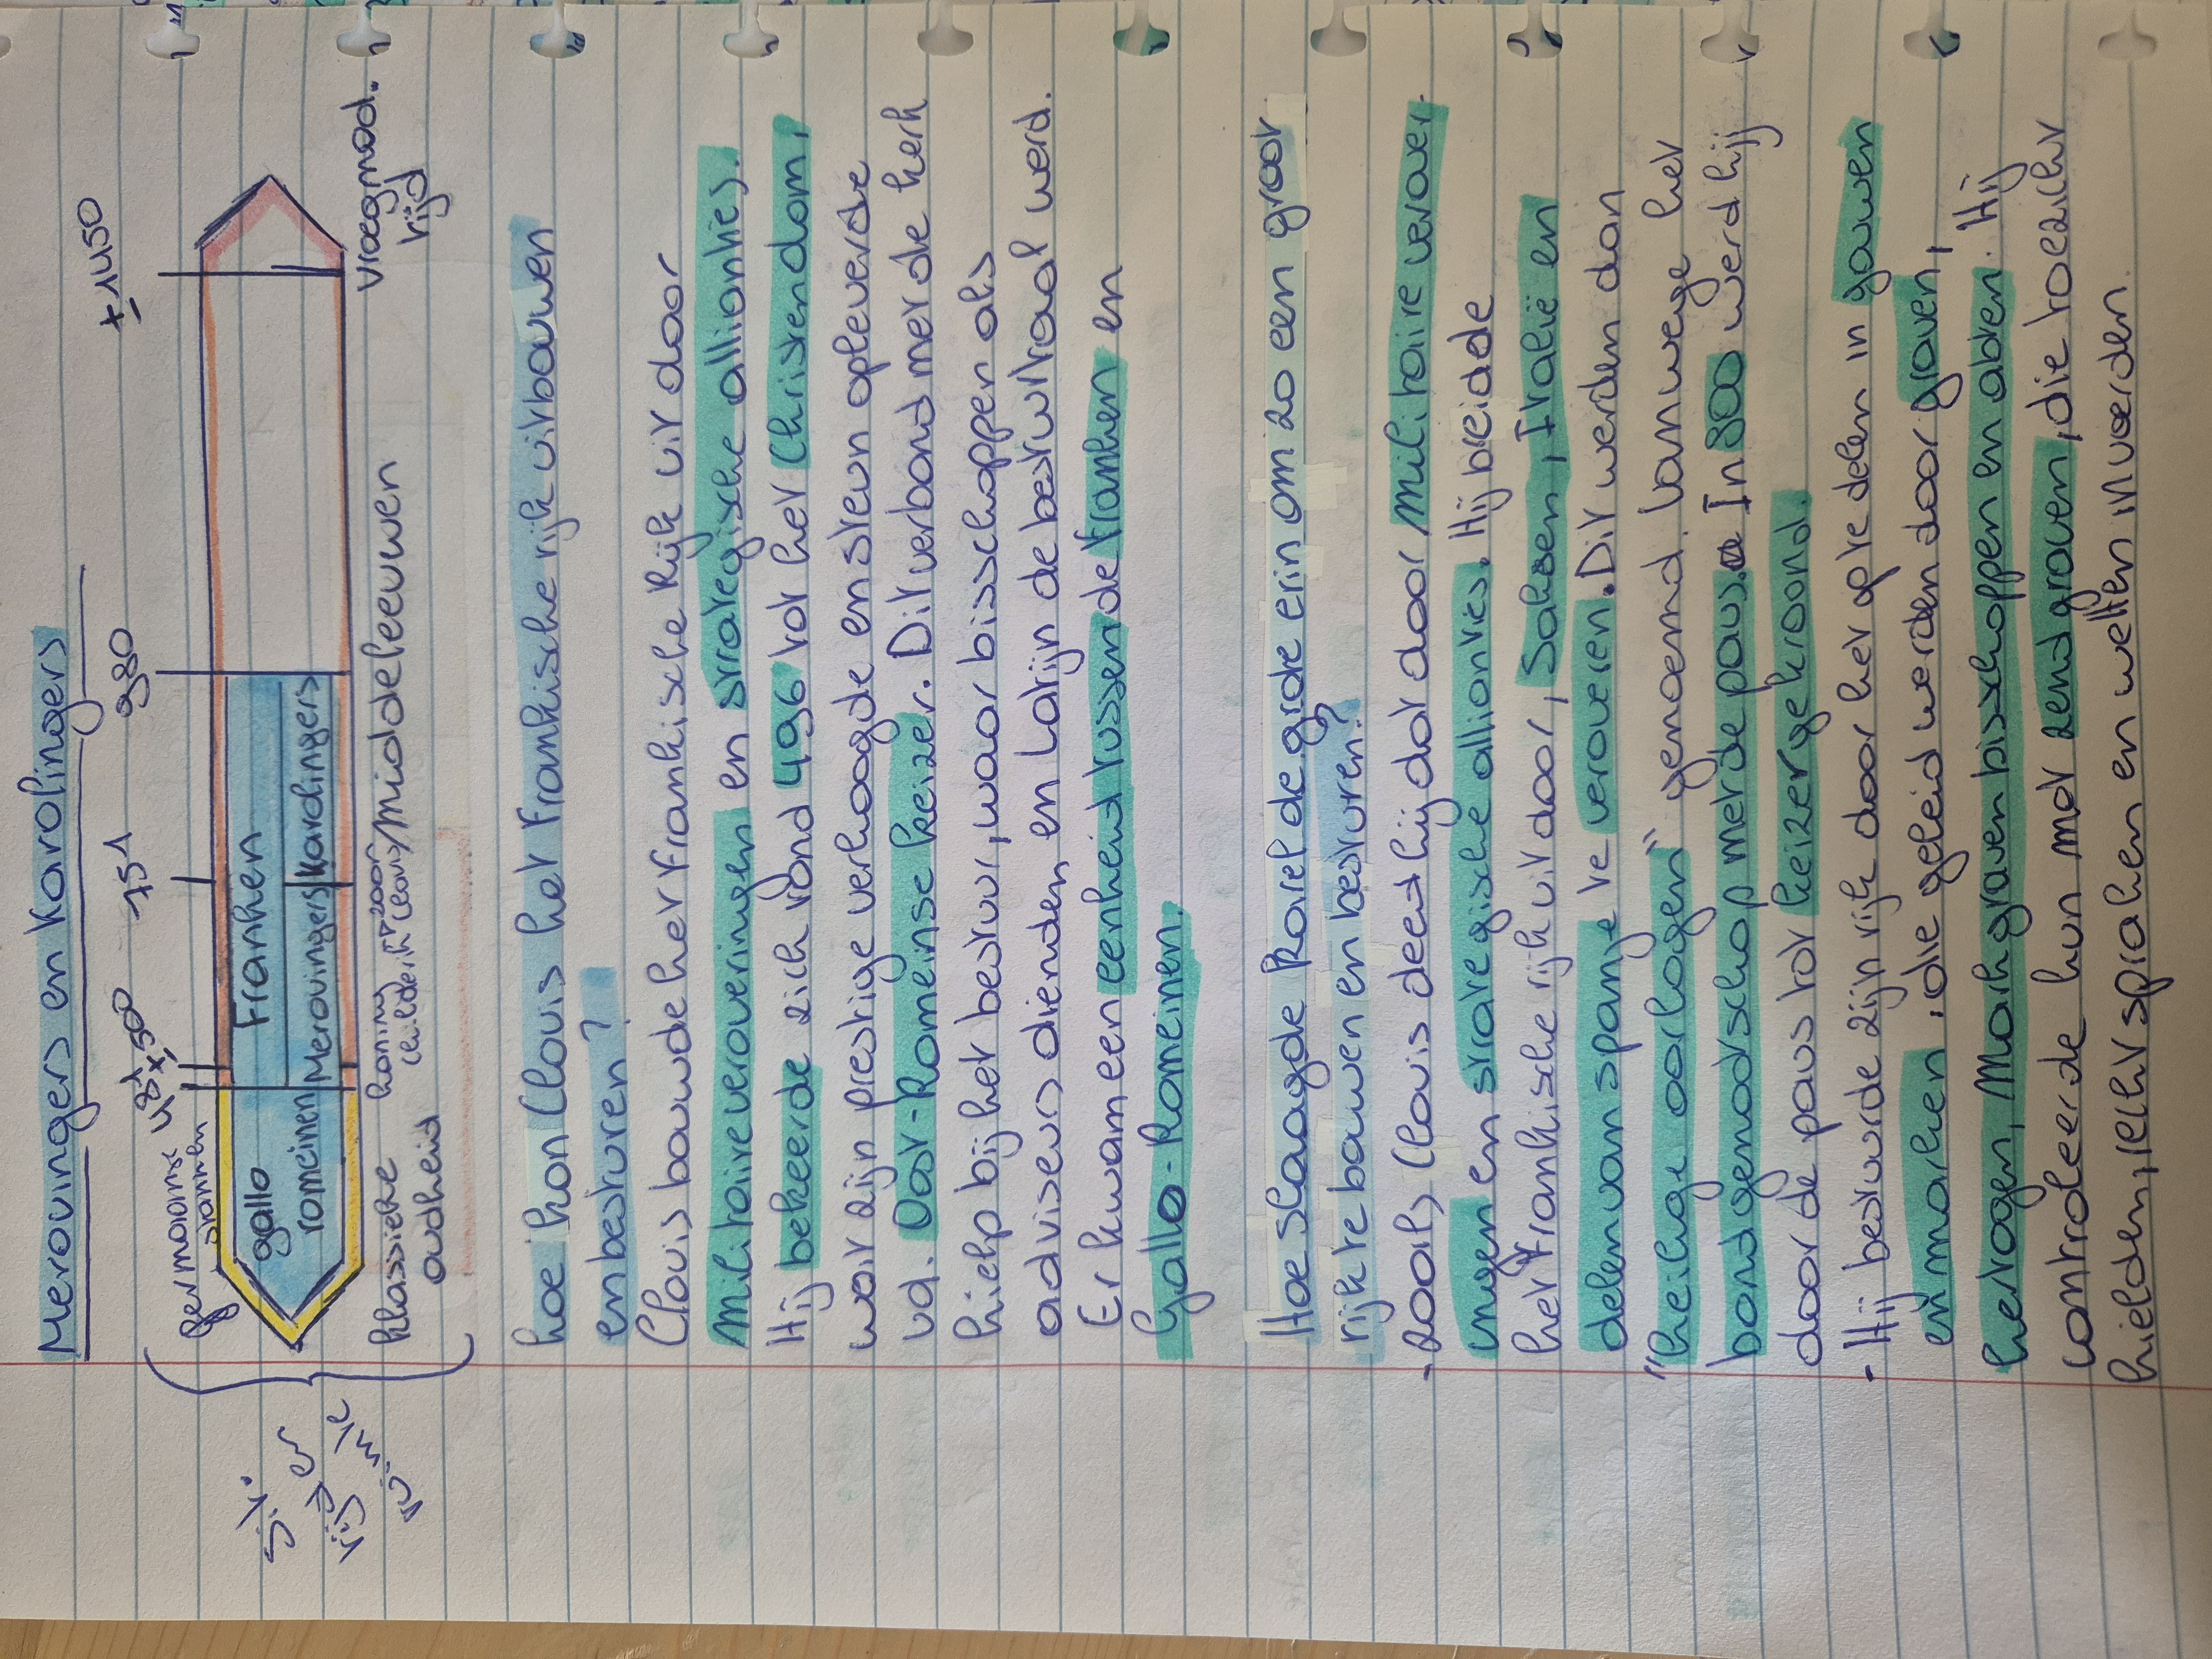 Merovingers en Karolingers
germaanse stammen
481
± 500
751
980
± 1450
gallo
romeinen
Franken
Merovingers
Karolingers
klassieke
oudheid
koning
Childerik
→ zoon
Clovis
Middeleeuwen
vroegmod.
tijd
hoe kon Clovis het Frankische rijk uitbouwen
en besturen?
Clovis bouwde het Frankische Rijk uit door
militaire veroveringen en strategische allianties.
Hij bekeerde zich rond 496 tot het Christendom,
wat zijn prestige verhoogde en steun opleverde
vd. Oost-Romeinse keizer. Dit verbond met de kerk
hielp bij het bestuur, waar bisschoppen als
adviseurs dienden en Latijn de bestuurstaal werd.
Er kwam een eenheid tussen de franken en
Gallo-Romeinen.
Hoe slaagde Karel de grote erin om zo een groot
rijk te bouwen en besturen?
- zoals Clovis deed hij dat door militaire verover
ingen en strategische allianties. Hij breidde
het frankische rijk uit door, Saksen, Italië en
delen van spanje te veroveren. Dit werden dan
"heilige oorlogen" genoemd vanwege het
bondgenootschap met de paus. In 800 werd hij
door de paus tot keizer gekroond.
- Hij bestuurde zijn rijk door het op te delen in gouwen
en marken, die geleid werden door graven,
hertogen, Markgraven bisschoppen en abten. Hij
controleerde hun met zendgraven, die toezicht
hielden, recht spraken en wetten invoerden.